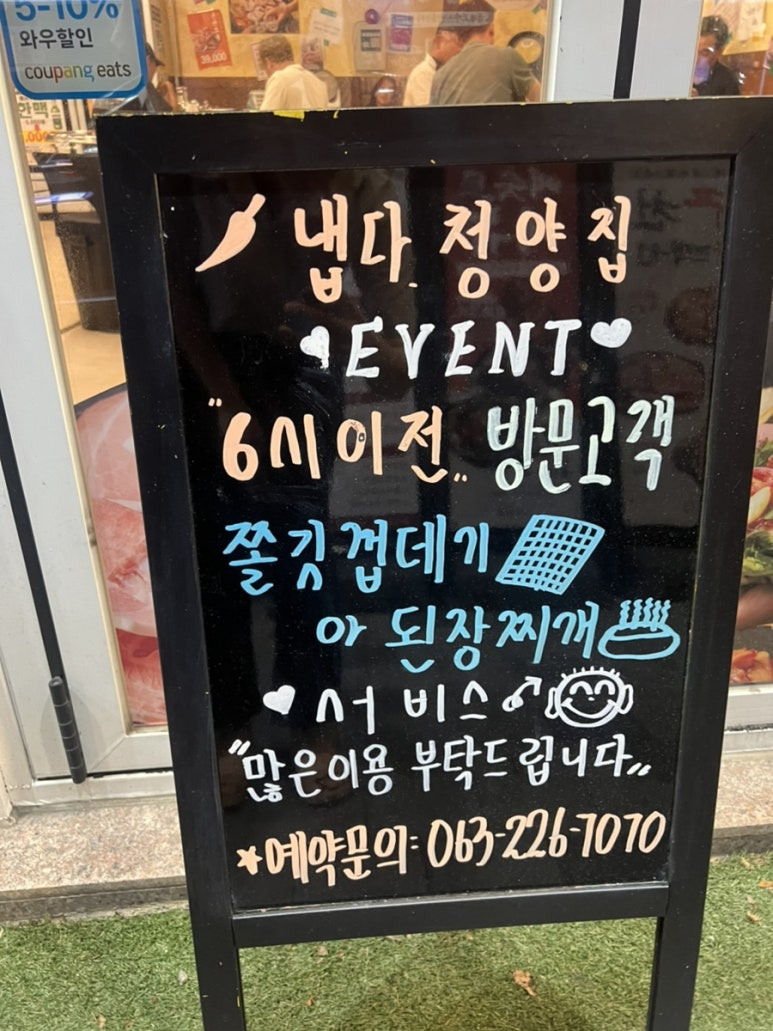 5-10%
와우할인
coupang eats
39,000
냅다 청양집
EVENT
"6시이전" 방문고객
쫄깃껍데기
아 된장찌개
서비스
"많은이용 부탁드립니다"
예약문의: 063-226-7070